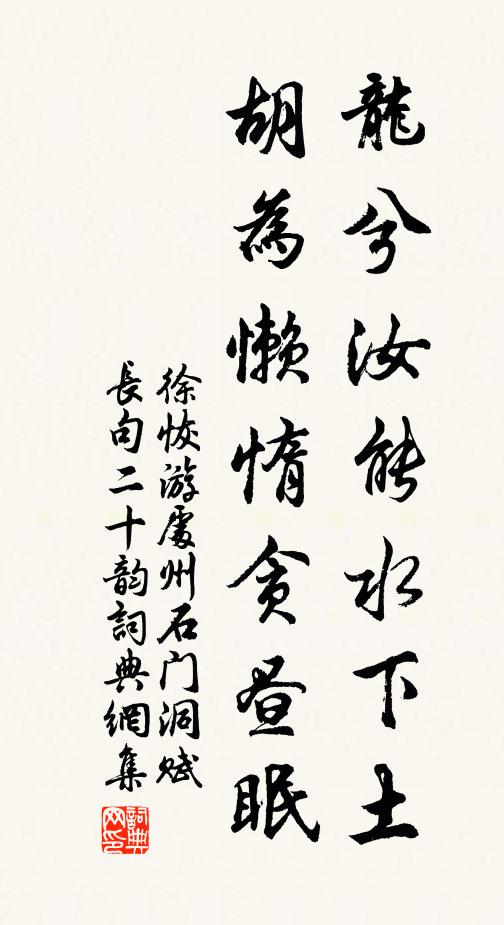 龍兮汝能水下土
胡為懒惰貪昼眠
徐恢游處州石门洞赋
長句二十韵詞典網集
詞典
网印